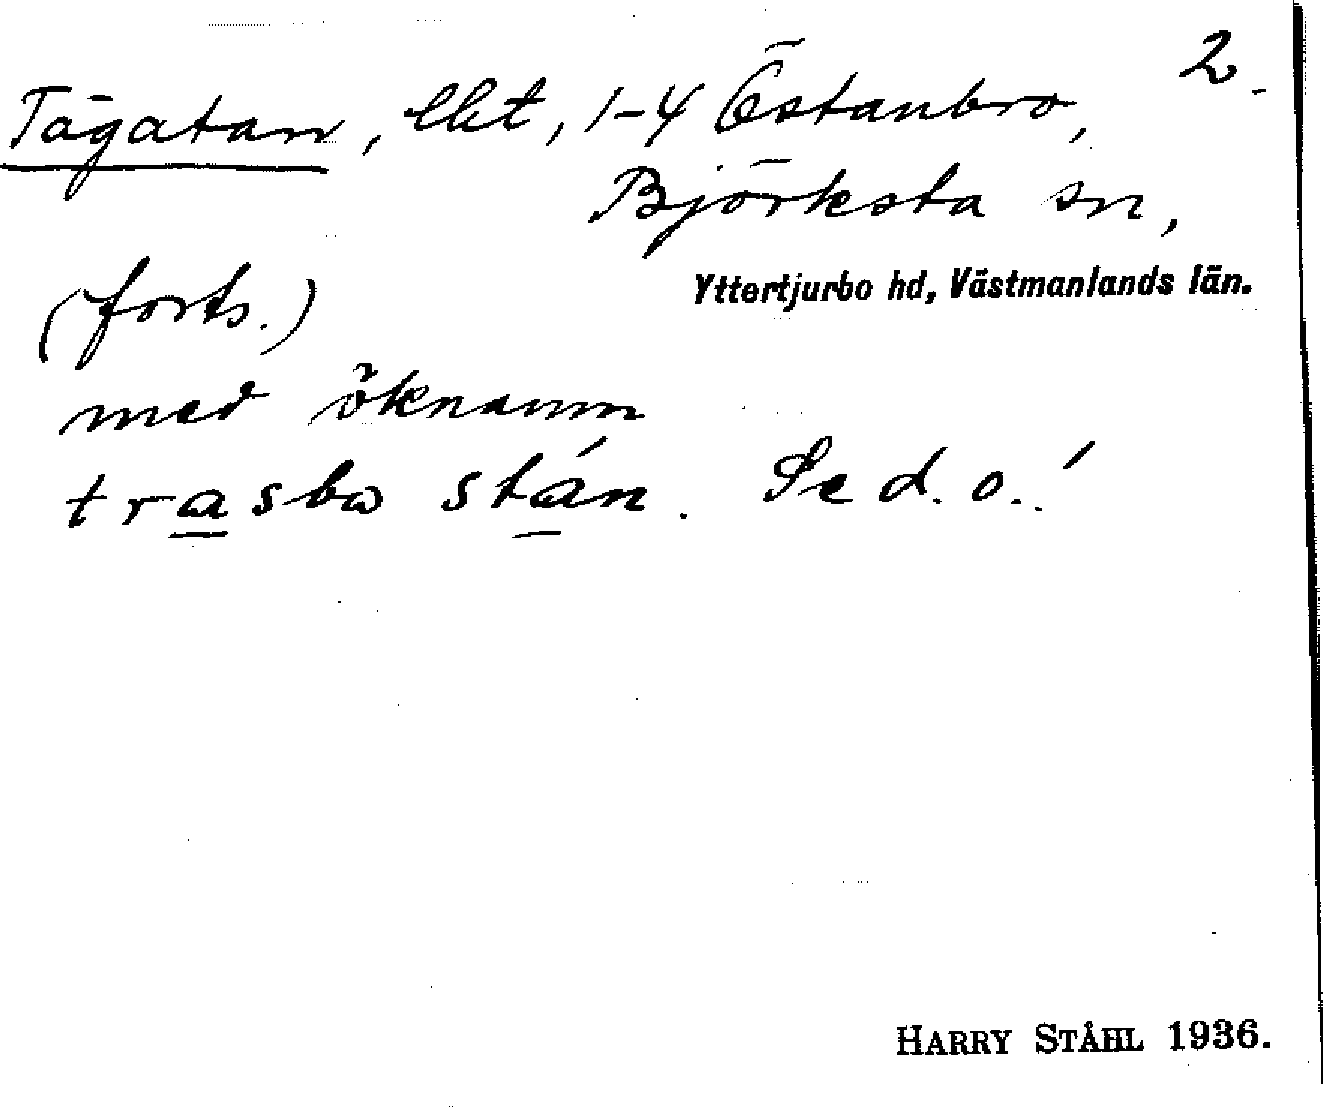 2.
Tågatan, lht, 1-4 Östanbro,
Björksta sn,
Yttertjurbo hd, Västmanlands län.
(forts.)
med öknamn
trasbo stán. Se d. o.!
HARRY STÅHL 1936.